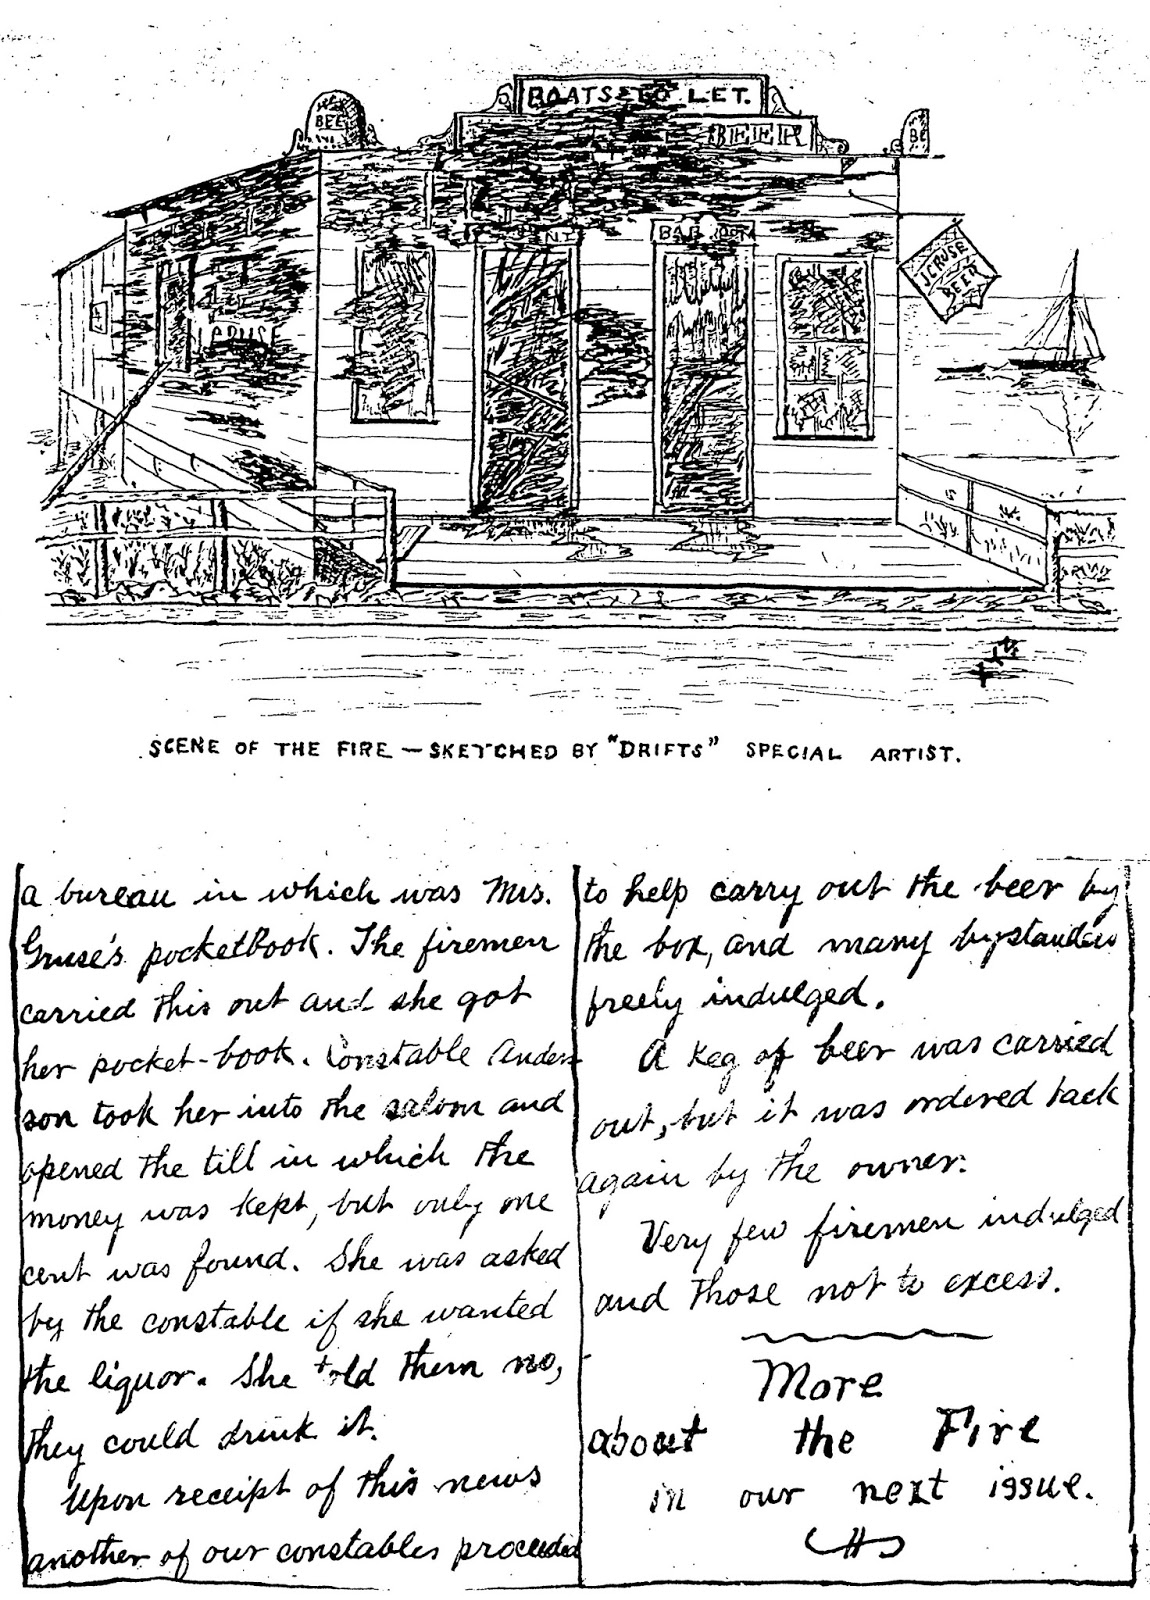 BOATS TO LET.
BEE
BEER
BE
BAR ROOM
CRUSE
BEER
SCENE OF THE FIRE — SKETCHED BY "DRIFTS" SPECIAL ARTIST.
a bureau in which was Mrs.
Gruse's pocketbook. The firemen
carried this out and she got
her pocket-book. Constable Ander-
son took her into the saloon and
opened the till in which the
money was kept, but only one
cent was found. She was asked
by the constable if she wanted
the liquor. She told them no,
they could drink it.
Upon receipt of this news
another of our constables proceeded
to help carry out the beer by
the box, and many bystanders
freely indulged.
A keg of beer was carried
out, but it was ordered back
again by the owner.
Very few firemen indulged
and those not to excess.
More
about the Fire
in our next issue.